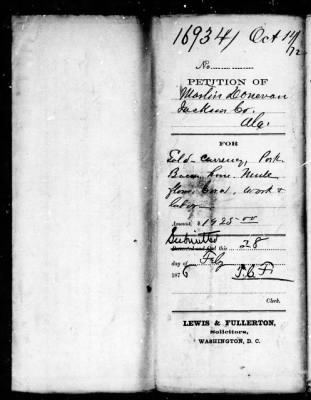 16934 Oct 14/72
No.
PETITION OF
Martin Donevan
Jackson Co.
Ala.
FOR
Gold - Currency, Pork
Bacon, horse, Mule
flour, Corn, Work &
labor
Amount, $ 1925 00
Submitted
this 28
day of Feby
1876
Clerk.
LEWIS & FULLERTON,
Solicitors,
WASHINGTON, D. C.